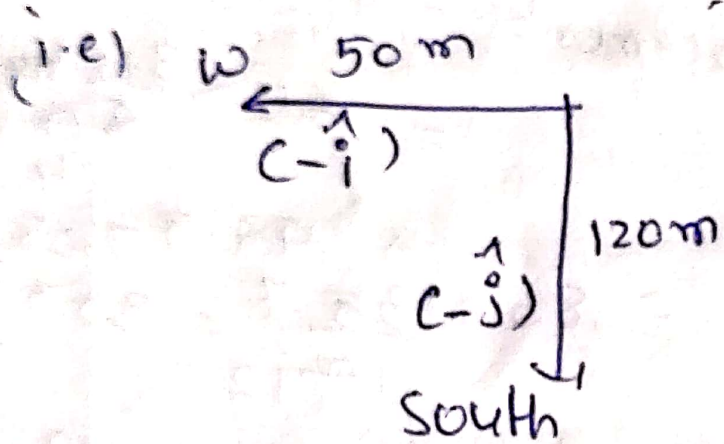 (i.e) W 50 m
(-î)
120 m
(-ĵ)
South